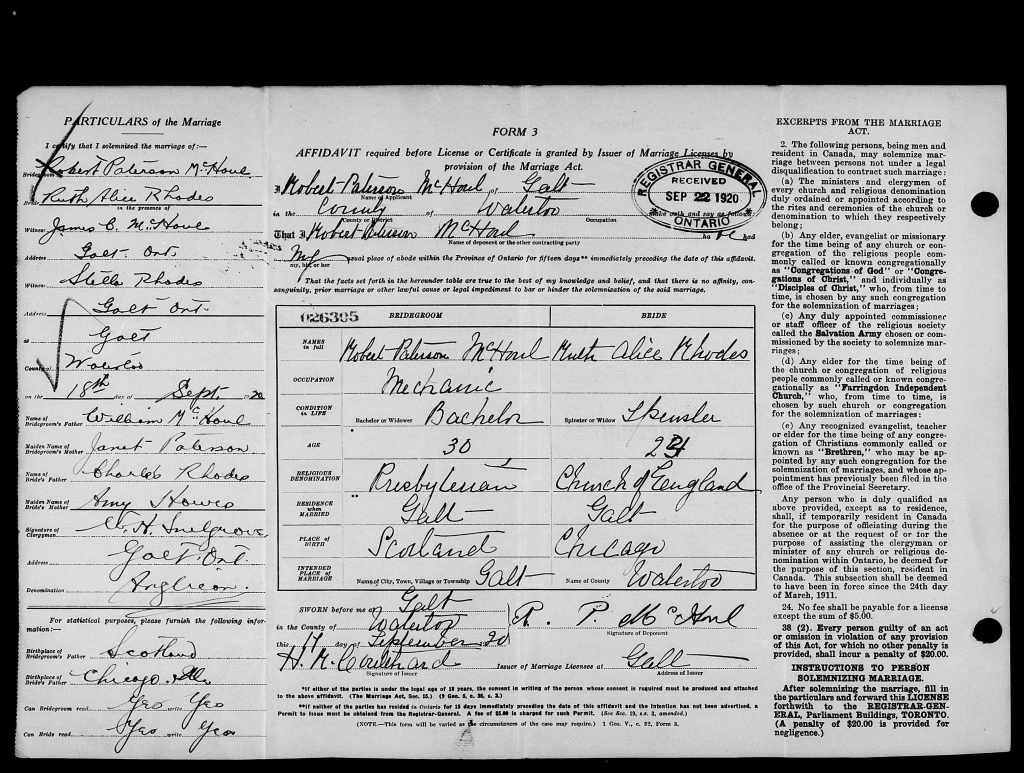 PARTICULARS of the Marriage
I certify that I solemnized the marriage of:—
Bridegroom Robert Paterson McHoul
Bride Ruth Alice Rhodes
in the presence of
Witness James C. McHoul
Address Galt Ont.
Witness Stella Rhodes
Address Galt Ont.
at Galt
County of Waterloo
on the 18th day of Sept. 1920
Name of Bridegroom's Father William McHoul
Maiden Name of Bridegroom's Mother Janet Paterson
Name of Bride's Father Charles Rhodes
Maiden Name of Bride's Mother Amy Howes
Signature of Clergyman
Address Galt Ont.
Denomination Anglican
For statistical purposes, please furnish the following information:—
Birthplace of Bridegroom's Father Scotland
Birthplace of Bride's Father Chicago Ill.
Can Bridegroom read Yes write Yes
Can Bride read Yes write Yes
FORM 3
AFFIDAVIT required before License or Certificate is granted by Issuer of Marriage Licenses by
provision of the Marriage Act.
I Robert Paterson McHoul of Galt
Name of Applicant
in the County of Waterloo make oath and say as follows:
County or District Occupation
That I Robert Paterson McHoul have had
Name of deponent or the other contracting party
my usual place of abode within the Province of Ontario for fifteen days** immediately preceding the date of this affidavit.
my, his, or her
REGISTRAR GENERAL
RECEIVED
SEP 22 1920
ONTARIO
That the facts set forth in the hereunder table are true to the best of my knowledge and belief, and that there is no affinity, consanguinity, prior marriage or other lawful cause or legal impediment to bar or hinder the solemnization of the said marriage.
026305 BRIDEGROOM BRIDE
NAMES in full Robert Paterson McHoul Ruth Alice Rhodes
OCCUPATION Mechanic
CONDITION in LIFE Bachelor or Widower Bachelor Spinster or Widow Spinster
AGE 30 24
RELIGIOUS DENOMINATION Presbyterian Church of England
RESIDENCE when MARRIED Galt Galt
PLACE OF BIRTH Scotland Chicago
INTENDED PLACE OF MARRIAGE Name of City, Town, Village or Township Galt Name of County Waterloo
SWORN before me at Galt
in the County of Waterloo
R. P. McHoul
Signature of Deponent
this 17 day of September 20
Issuer of Marriage Licenses at Galt
Signature of Issuer Address of Issuer
*If either of the parties is under the legal age of 18 years, the consent in writing of the person whose consent is required must be produced and attached
to the above affidavit. (The Marriage Act, Sec. 15.) (9 Geo. 5, c. 35, s. 2.)
**If neither of the parties has resided in Ontario for 15 days immediately preceding the date of this affidavit and the Intention has not been advertised, a
Permit to Issue must be obtained from the Registrar-General. A fee of $5.00 is charged for such Permit. (See Sec. 19, s.s. 3, amended.)
(NOTE—This form will be varied as the circumstances of the case may require.) 1 Geo. V., c. 32, Form 3.
EXCERPTS FROM THE MARRIAGE
ACT.
2. The following persons, being men and
resident in Canada, may solemnize mar-
riage between persons not under a legal
disqualification to contract such marriage:
(a) The ministers and clergymen of
every church and religious denomination
duly ordained or appointed according to
the rites and ceremonies of the church or
denomination to which they respectively
belong;
(b) Any elder, evangelist or missionary
for the time being of any church or con-
gregation of the religious people com-
monly called or known congregationally
as "Congregations of God" or "Congre-
gations of Christ," and individually as
"Disciples of Christ," who, from time to
time, is chosen by any such congregation
for the solemnization of marriages;
(c) Any duly appointed commissioner
or staff officer of the religious society
called the Salvation Army chosen or com-
missioned by the society to solemnize mar-
riages;
(d) Any elder for the time being of
the church or congregation of religious
people commonly called or known congre-
gationally as "Farringdon Independent
Church," who, from time to time, is
chosen by such church or congregation
for the solemnization of marriages:
(e) Any recognized evangelist, teacher
or elder for the time being of any congre-
gation of Christians commonly called or
known as "Brethren," who may be ap-
pointed by any such congregation for the
solemnization of marriages, and whose ap-
pointment has previously been filed in the
office of the Provincial Secretary.
Any person who is duly qualified as
above provided, except as to residence,
shall, if temporarily resident in Canada
for the purpose of officiating during the
absence or at the request of or for the
purpose of assisting the clergyman or
minister of any church or religious de-
nomination within Ontario, be deemed for
the purpose of this section, resident in
Canada. This subsection shall be deemed
to have been in force since the 24th day
of March, 1911.
24. No fee shall be payable for a license
except the sum of $5.00.
38 (2). Every person guilty of an act
or omission in violation of any provision
of this Act, for which no other penalty is
provided, shall incur a penalty of $20.00.
INSTRUCTIONS TO PERSON
SOLEMNIZING MARRIAGE.
After solemnizing the marriage, fill in
the particulars and forward this LICENSE
forthwith to the REGISTRAR-GEN-
ERAL, Parliament Buildings, TORONTO.
(A penalty of $20.00 is provided for
negligence.)